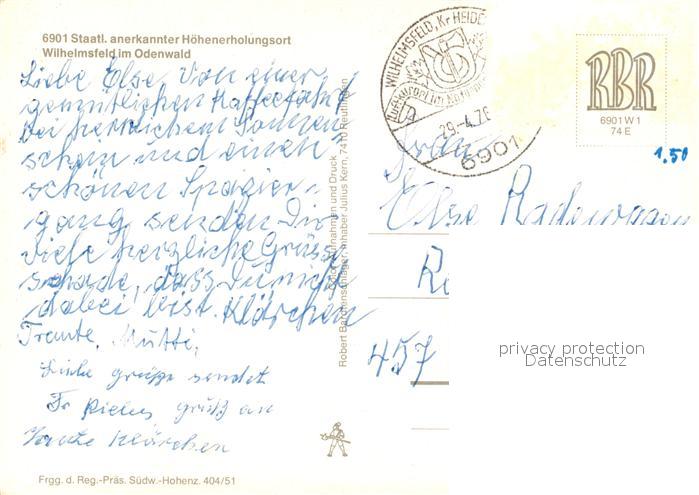 6901 Staatl. anerkannter Höhenerholungsort
Wilhelmsfeld im Odenwald
Liebe Else. Von einer
gemütlichen Kaffeefahrt
bei herrlichem Sonnen
schein und einen
schönen Spazier-
gang, senden Dir
viele herzliche Grüsse
schade, dass Du nicht
dabei bist. Klärchen
Traute. Mutti.
Liebe grüße sendet
grüß an
Klärchen
Frgg. d. Reg.-Präs. Südw.-Hohenz. 404/51
Robert Bardtenschlager, Inhaber Julius Kern, 7410 Reutlingen
Aufnahmen und Druck
WILHELMSFELD, Kr HEIDE
Luftkurort im
29.-4.76
6901
RBR
6901 W 1
74 E
1.50
Frau
Else Radewagen
457
privacy protection
Datenschutz